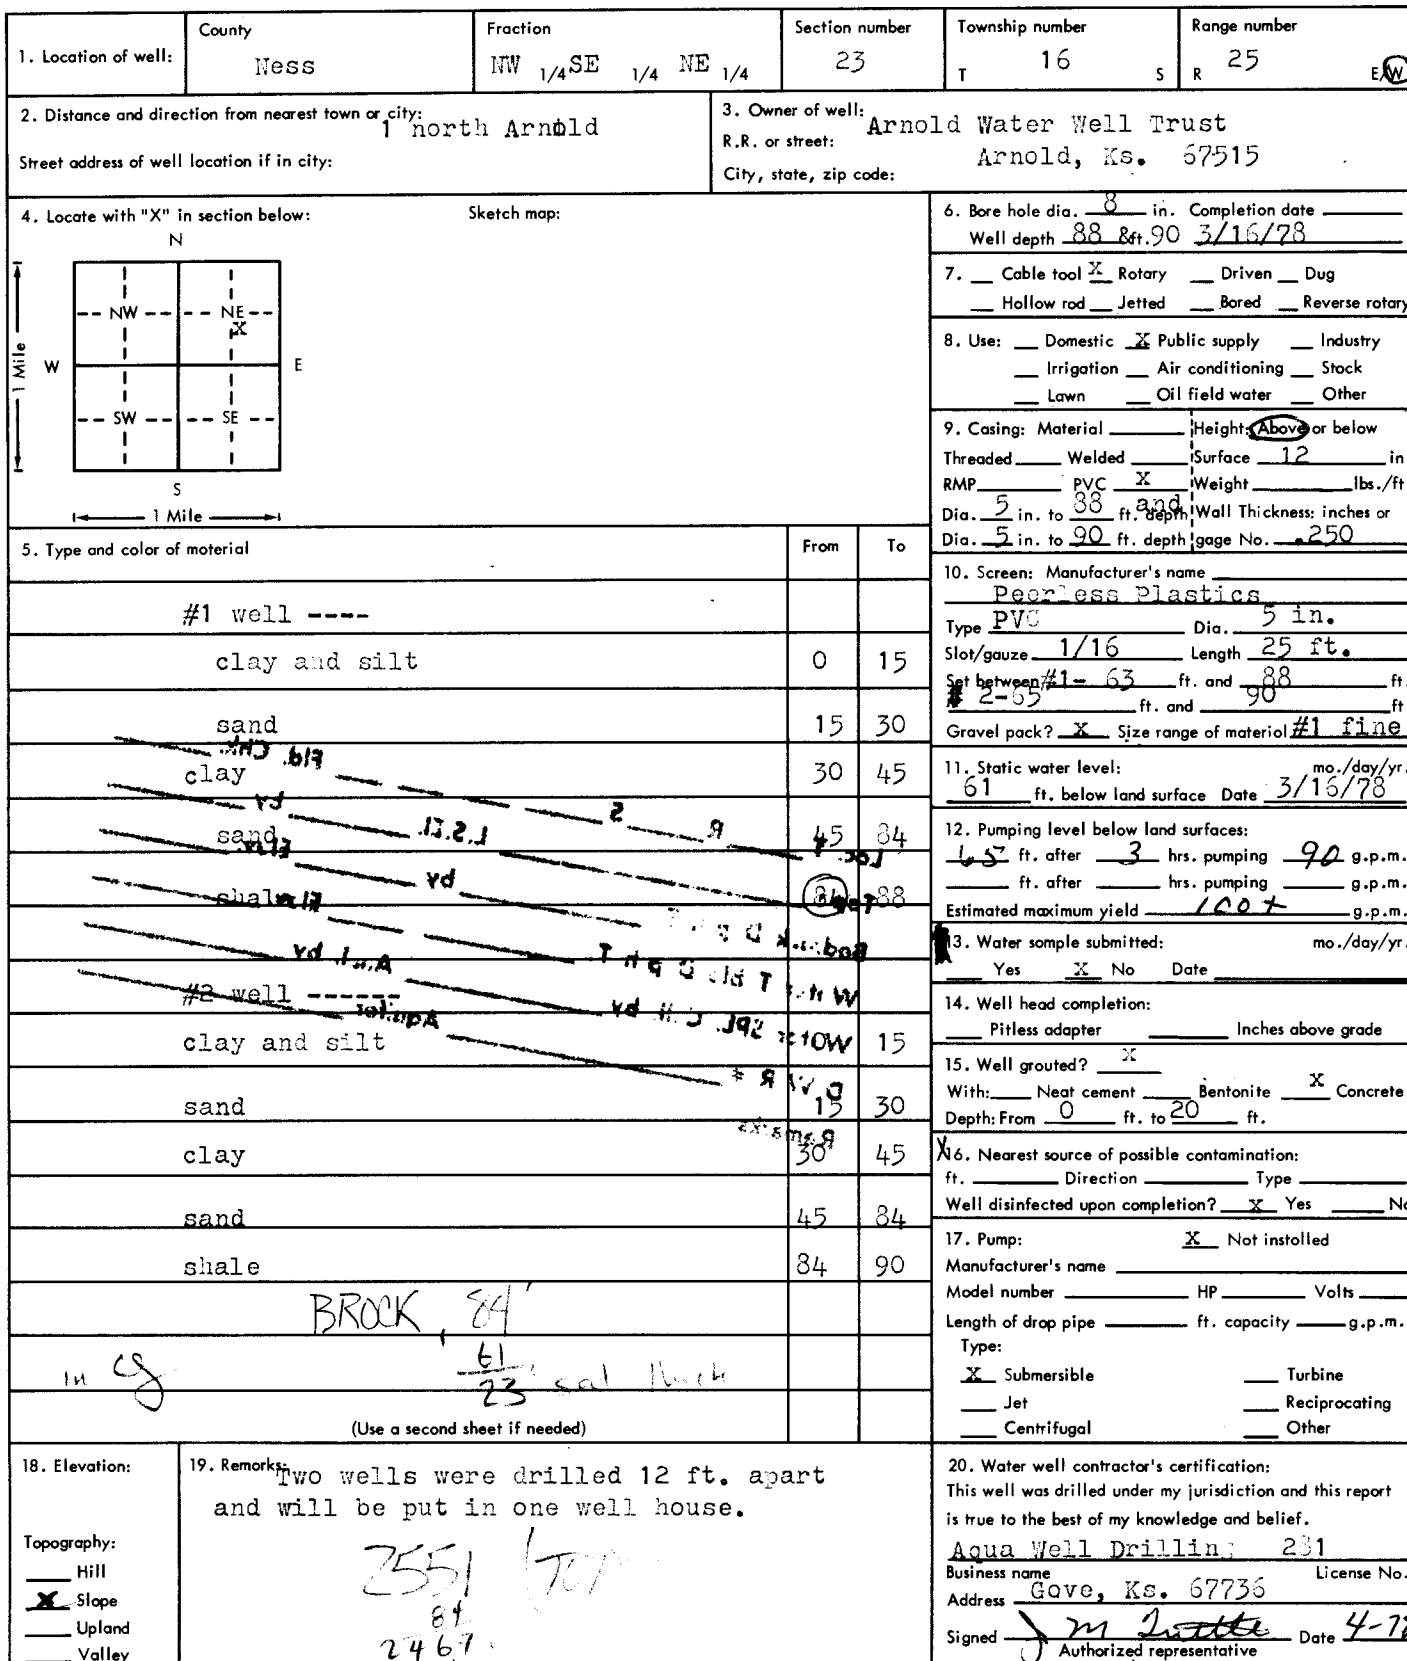 County
Fraction
Section number
Township number
Range number
1. Location of well:
Ness
NW 1/4 SE 1/4 NE 1/4
23
T 16 S
R 25 E/W
2. Distance and direction from nearest town or city:
1 north Arnold
Street address of well location if in city:
3. Owner of well: Arnold Water Well Trust
R.R. or street:
Arnold, Ks. 67515
City, state, zip code:
4. Locate with "X" in section below:
Sketch map:
N
NW NE
X
W E
1 Mile
SW SE
S
1 Mile
5. Type and color of material From To
#1 well ----
clay and silt 0 15
sand 15 30
clay 30 45
sand 45 84
shale 84 88
#2 well ------
clay and silt 0 15
sand 15 30
clay 30 45
sand 45 84
shale 84 90
BROCK, 84'
61
23'
In
(Use a second sheet if needed)
6. Bore hole dia. 8 in. Completion date
Well depth 88 & ft. 90 3/16/78
7. Cable tool X Rotary Driven Dug
Hollow rod Jetted Bored Reverse rotary
8. Use: Domestic X Public supply Industry
Irrigation Air conditioning Stock
Lawn Oil field water Other
9. Casing: Material Height: Above or below
Threaded Welded Surface 12 in
RMP PVC X Weight lbs./ft
Dia. 5 in. to 88 ft. depth and Wall Thickness: inches or
Dia. 5 in. to 90 ft. depth gage No. .250
10. Screen: Manufacturer's name
Peerless Plastics
Type PVC Dia. 5 in.
Slot/gauze 1/16 Length 25 ft.
Set between #1- 63 ft. and 88 ft.
# 2-65 ft. and 90 ft
Gravel pack? X Size range of material #1 fine
11. Static water level: mo./day/yr.
61 ft. below land surface Date 3/16/78
12. Pumping level below land surfaces:
65 ft. after 3 hrs. pumping 90 g.p.m.
ft. after hrs. pumping g.p.m.
Estimated maximum yield 100+ g.p.m.
13. Water sample submitted: mo./day/yr.
Yes X No Date
14. Well head completion:
Pitless adapter Inches above grade
15. Well grouted? X
With: Neat cement Bentonite X Concrete
Depth: From 0 ft. to 20 ft.
16. Nearest source of possible contamination:
ft. Direction Type
Well disinfected upon completion? X Yes No
17. Pump: X Not installed
Manufacturer's name
Model number HP Volts
Length of drop pipe ft. capacity g.p.m.
Type:
X Submersible Turbine
Jet Reciprocating
Centrifugal Other
18. Elevation:
Topography:
Hill
X Slope
Upland
Valley
19. Remarks: Two wells were drilled 12 ft. apart
and will be put in one well house.
2551
84
2467
20. Water well contractor's certification:
This well was drilled under my jurisdiction and this report
is true to the best of my knowledge and belief.
Aqua Well Drilling 281
Business name License No.
Address Gove, Ks. 67736
Signed Date 4-78
Authorized representative